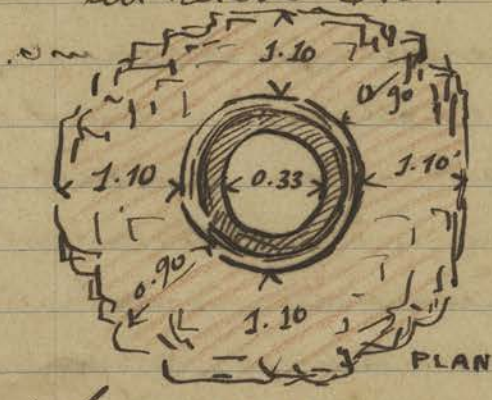 1.10
0.90
1.10 0.33 1.10
0.90
1.10
PLAN